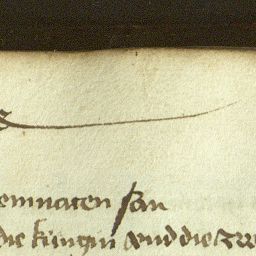 emnaten san
die kungin vnd die zw